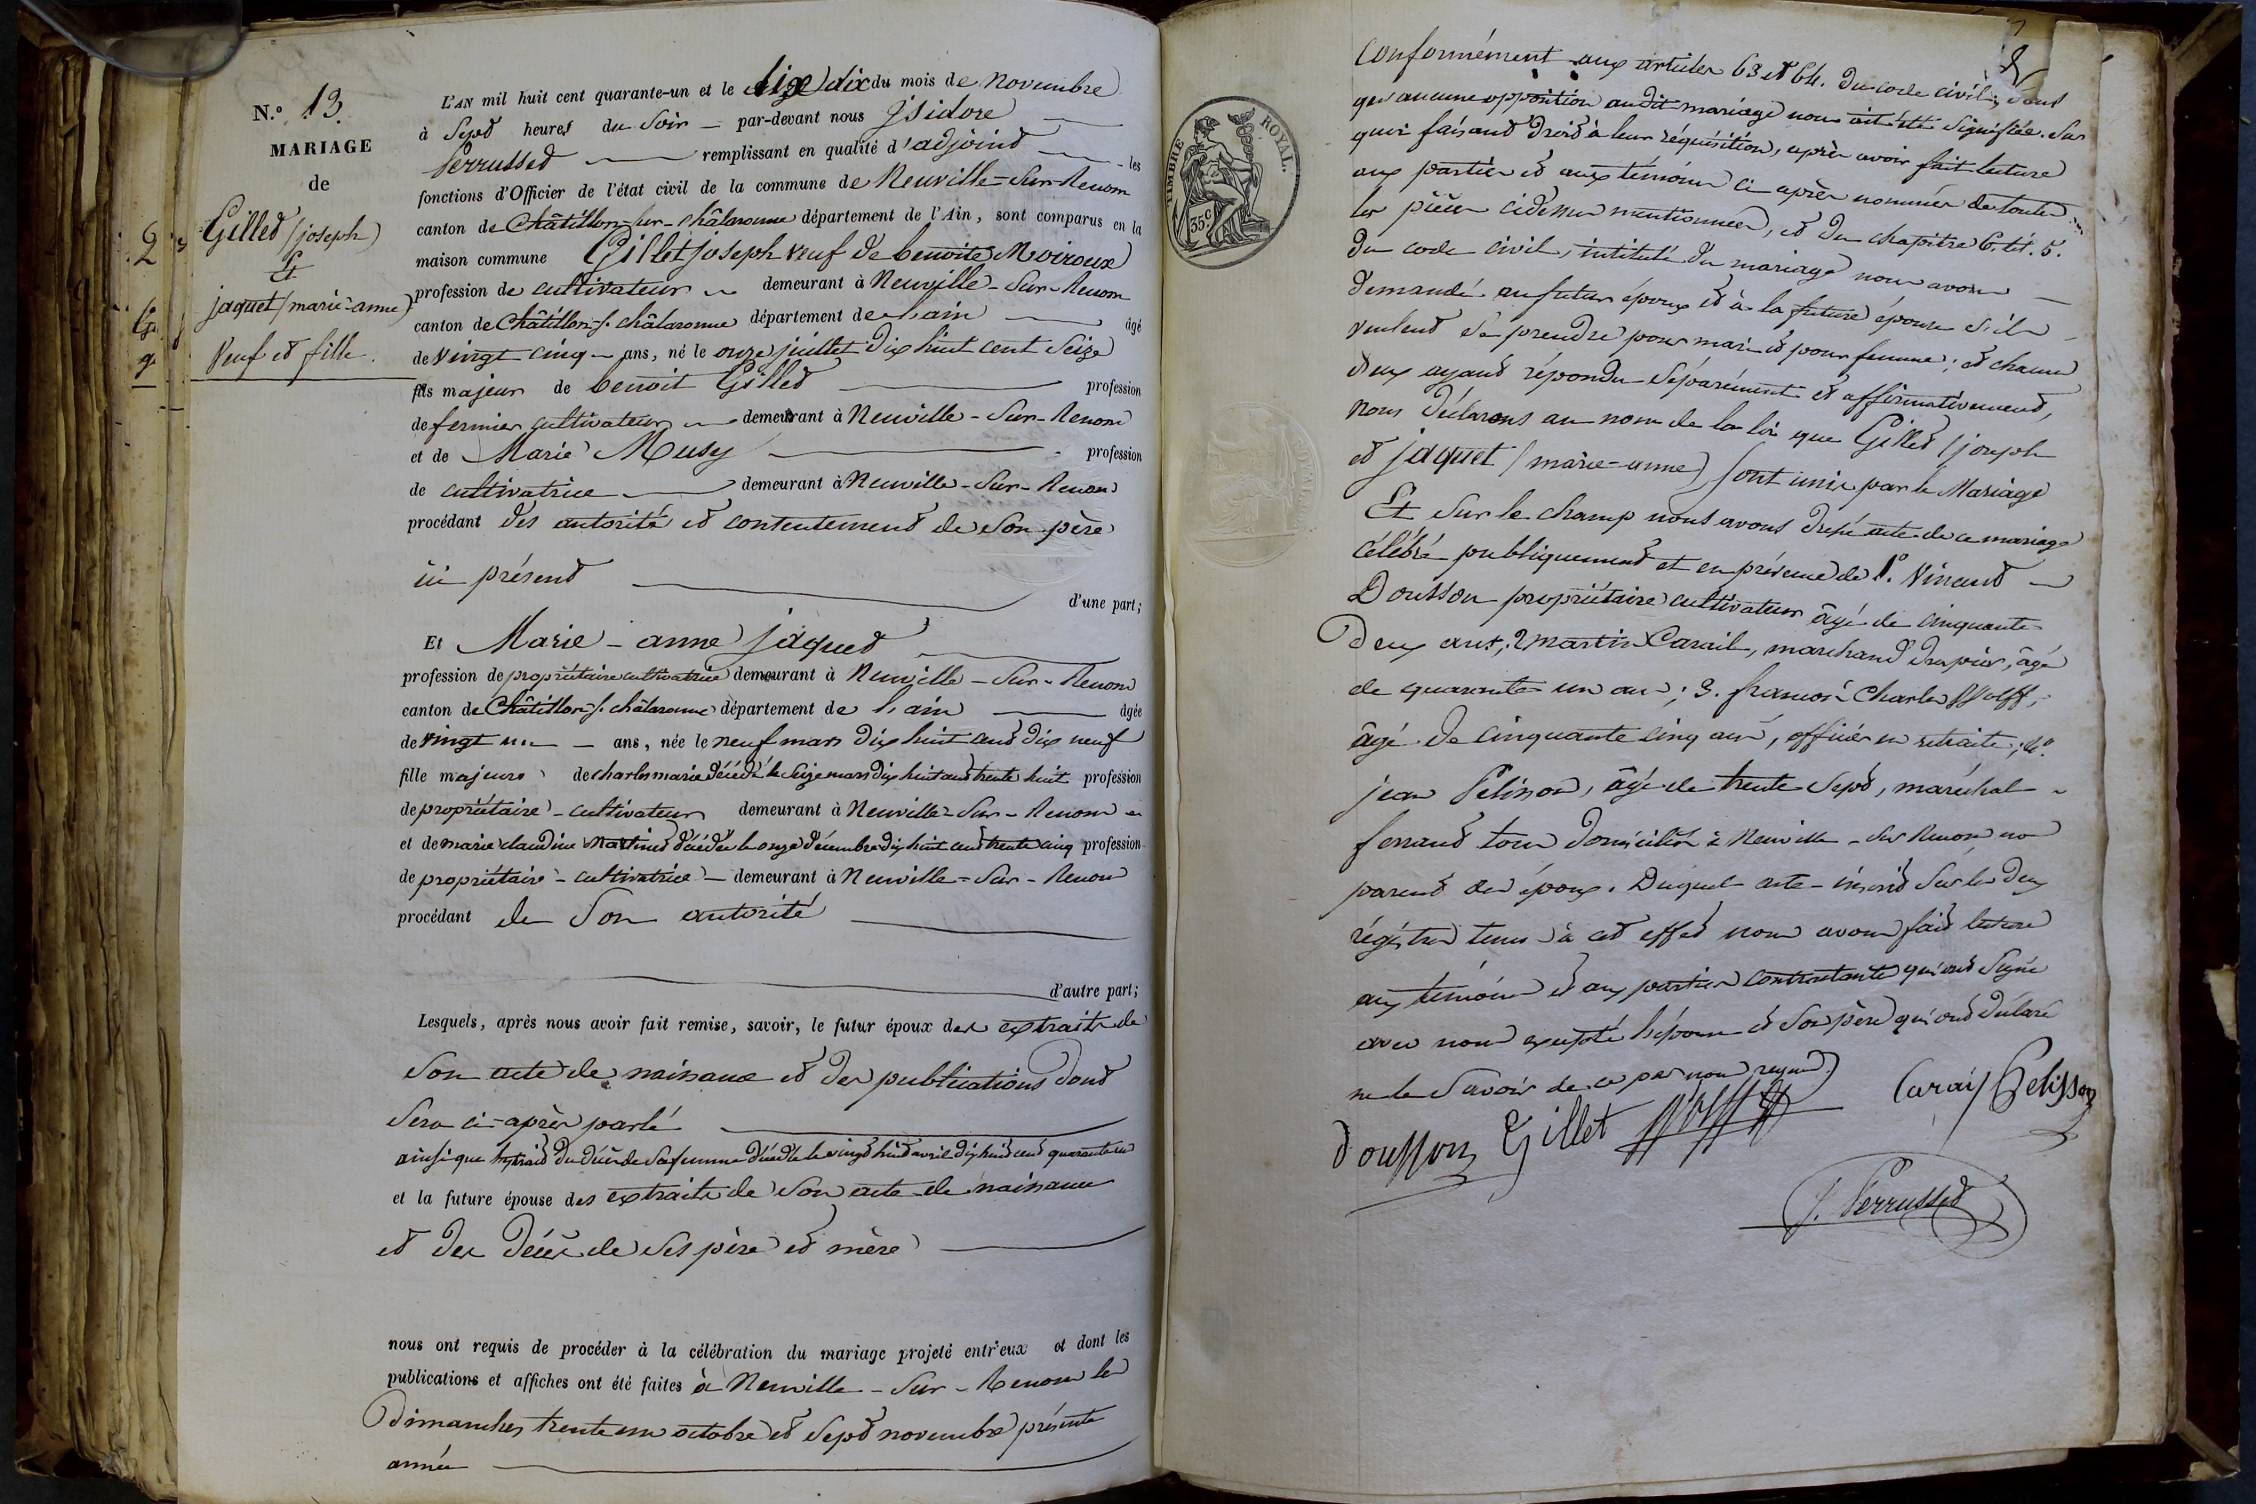 N.° 13.
MARIAGE
de
Gillet (joseph)
Et
jaquet (marie-anne)
Veuf et fille.
L'AN mil huit cent quarante-un et le dix du mois de novembre
à Sept heures du Soir par-devant nous Jsidore
Perrusset remplissant en qualité d'adjoint les
fonctions d'Officier de l'état civil de la commune de Neuville-Sur-Renom
canton de Châtillon-sur-Châlaronne département de l'Ain, sont comparus en la
maison commune Gillet joseph veuf de benoite Moiroux
profession de cultivateur demeurant à Neuville-Sur-Renom
canton de Châtillon-s.-châlaronne département de l'ain âgé
de vingt cinq ans, né le onze juillet dix huit cent Seize
fils majeur de benoit Gillet profession
de fermier cultivateur demeurant à Neuville-Sur-Renom
et de Marie Musy profession
de cultivatrice demeurant à Neuville-Sur-Renom
procédant des autorité et contentement de Son père
ici présent
d'une part;
Et Marie-anne jaquet
profession de propriétaire cultivatrice demeurant à Neuville-Sur-Renom
canton de Châtillon-s. châlaronne département de l'ain âgée
de vingt un ans, née le neuf mars dix huit cent dix neuf
fille majeure de charles marie décédé le Seize mars dix huit cent trente huit profession
de propriétaire-cultivateur demeurant à Neuville-Sur-Renom
et de marie claudine décédée le onze décembre dix huit cent trente cinq profession
de propriétaire-cultivatrice demeurant à Neuville-Sur-Renom
procédant de Son autorité
d'autre part;
Lesquels, après nous avoir fait remise, savoir, le futur époux des extraits de
Son acte de naissance et des publications dont
Sera ci-après parlé
ainsi que l'extrait du décès de Sa femme décédée le vingt huit avril dix huit cent quarante un
et la future épouse des extraits de Son acte de naissance
et des décès de Ses père et mère
nous ont requis de procéder à la célébration du mariage projeté entr'eux et dont les
publications et affiches ont été faites à Neuville-Sur-Renom les
Dimanches trente un octobre et Sept novembre présente
année
TIMBRE ROYAL.
35c
conformément aux articles 63 et 64. du code civil, Sans
qu'aucune opposition audit mariage nous ait été Signifiée. Sur
quoi faisant droit à leur réquisition, après avoir fait lecture
aux parties et aux témoins ci après nommés de toutes
les pièces cidessus mentionnées, et du chapitre 6. tit. 5.
du code civil, intitulé du mariage nous avons
demandé au futur époux et à la future épouse s'ils
veulent Se prendre pour mari et pour femme; et chacun
d'eux ayant répondu Séparément et affirmativement,
nous déclarons au nom de la loi que Gillet (joseph
et jaquet (marie-anne) Sont unis par le Mariage
Et Sur le champ nous avons dressé acte de ce mariage
célébré publiquement et en présence de 1°. Vincent
Dousson propriétaire cultivateur âgé de cinquante
Deux ans; 2 martin Carail, marchand drapier, âgé
de quarante un ans; 3. francois Charles Wolff,
âgé de cinquante cinq ans, officier en retraite; 4°.
jean Pelisson, âgé de trente Sept, maréchal
ferrant tous domiciliés à Neuville-Sur Renom non
parents des époux. Duquel acte inscrit Sur les deux
régistres tenus à cet effet nous avons fait lecture
aux témoins et aux parties contractantes qui ont Signé
avec nous excepté l'épouse et Son père qui ont déclaré
ne le Savoir de ce par nous requis
dousson Gillet Wolff Carail Pelisson
J. Perrusset